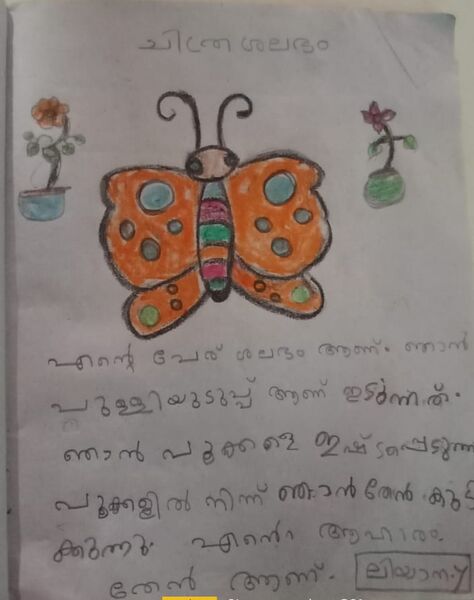 ചിത്രശലഭം
എന്റെ പേര് ശലഭം ആണ്. ഞാൻ
പുള്ളിയുടുപ്പ് ആണ് ഇടുന്നത്.
ഞാൻ പൂക്കളെ ഇഷ്ടപ്പെടുന്നു
പൂക്കളിൽ നിന്ന് ഞാൻ തേൻ കുടി
ക്കുന്നു. എന്റെ ആഹാരം
തേൻ ആണ്.
ലിയാന.y